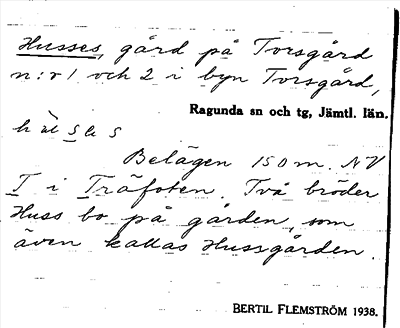 Husses, gård på Torsgård
n:r 1 och 2 i byn Torsgård,
Ragunda sn och tg, Jämtl. län.
Belägen 150 m. NV
I i Träfoten. Två bröder
Huss bo på gården, som
även kallas Hussgården.
BERTIL FLEMSTRÖM 1938.